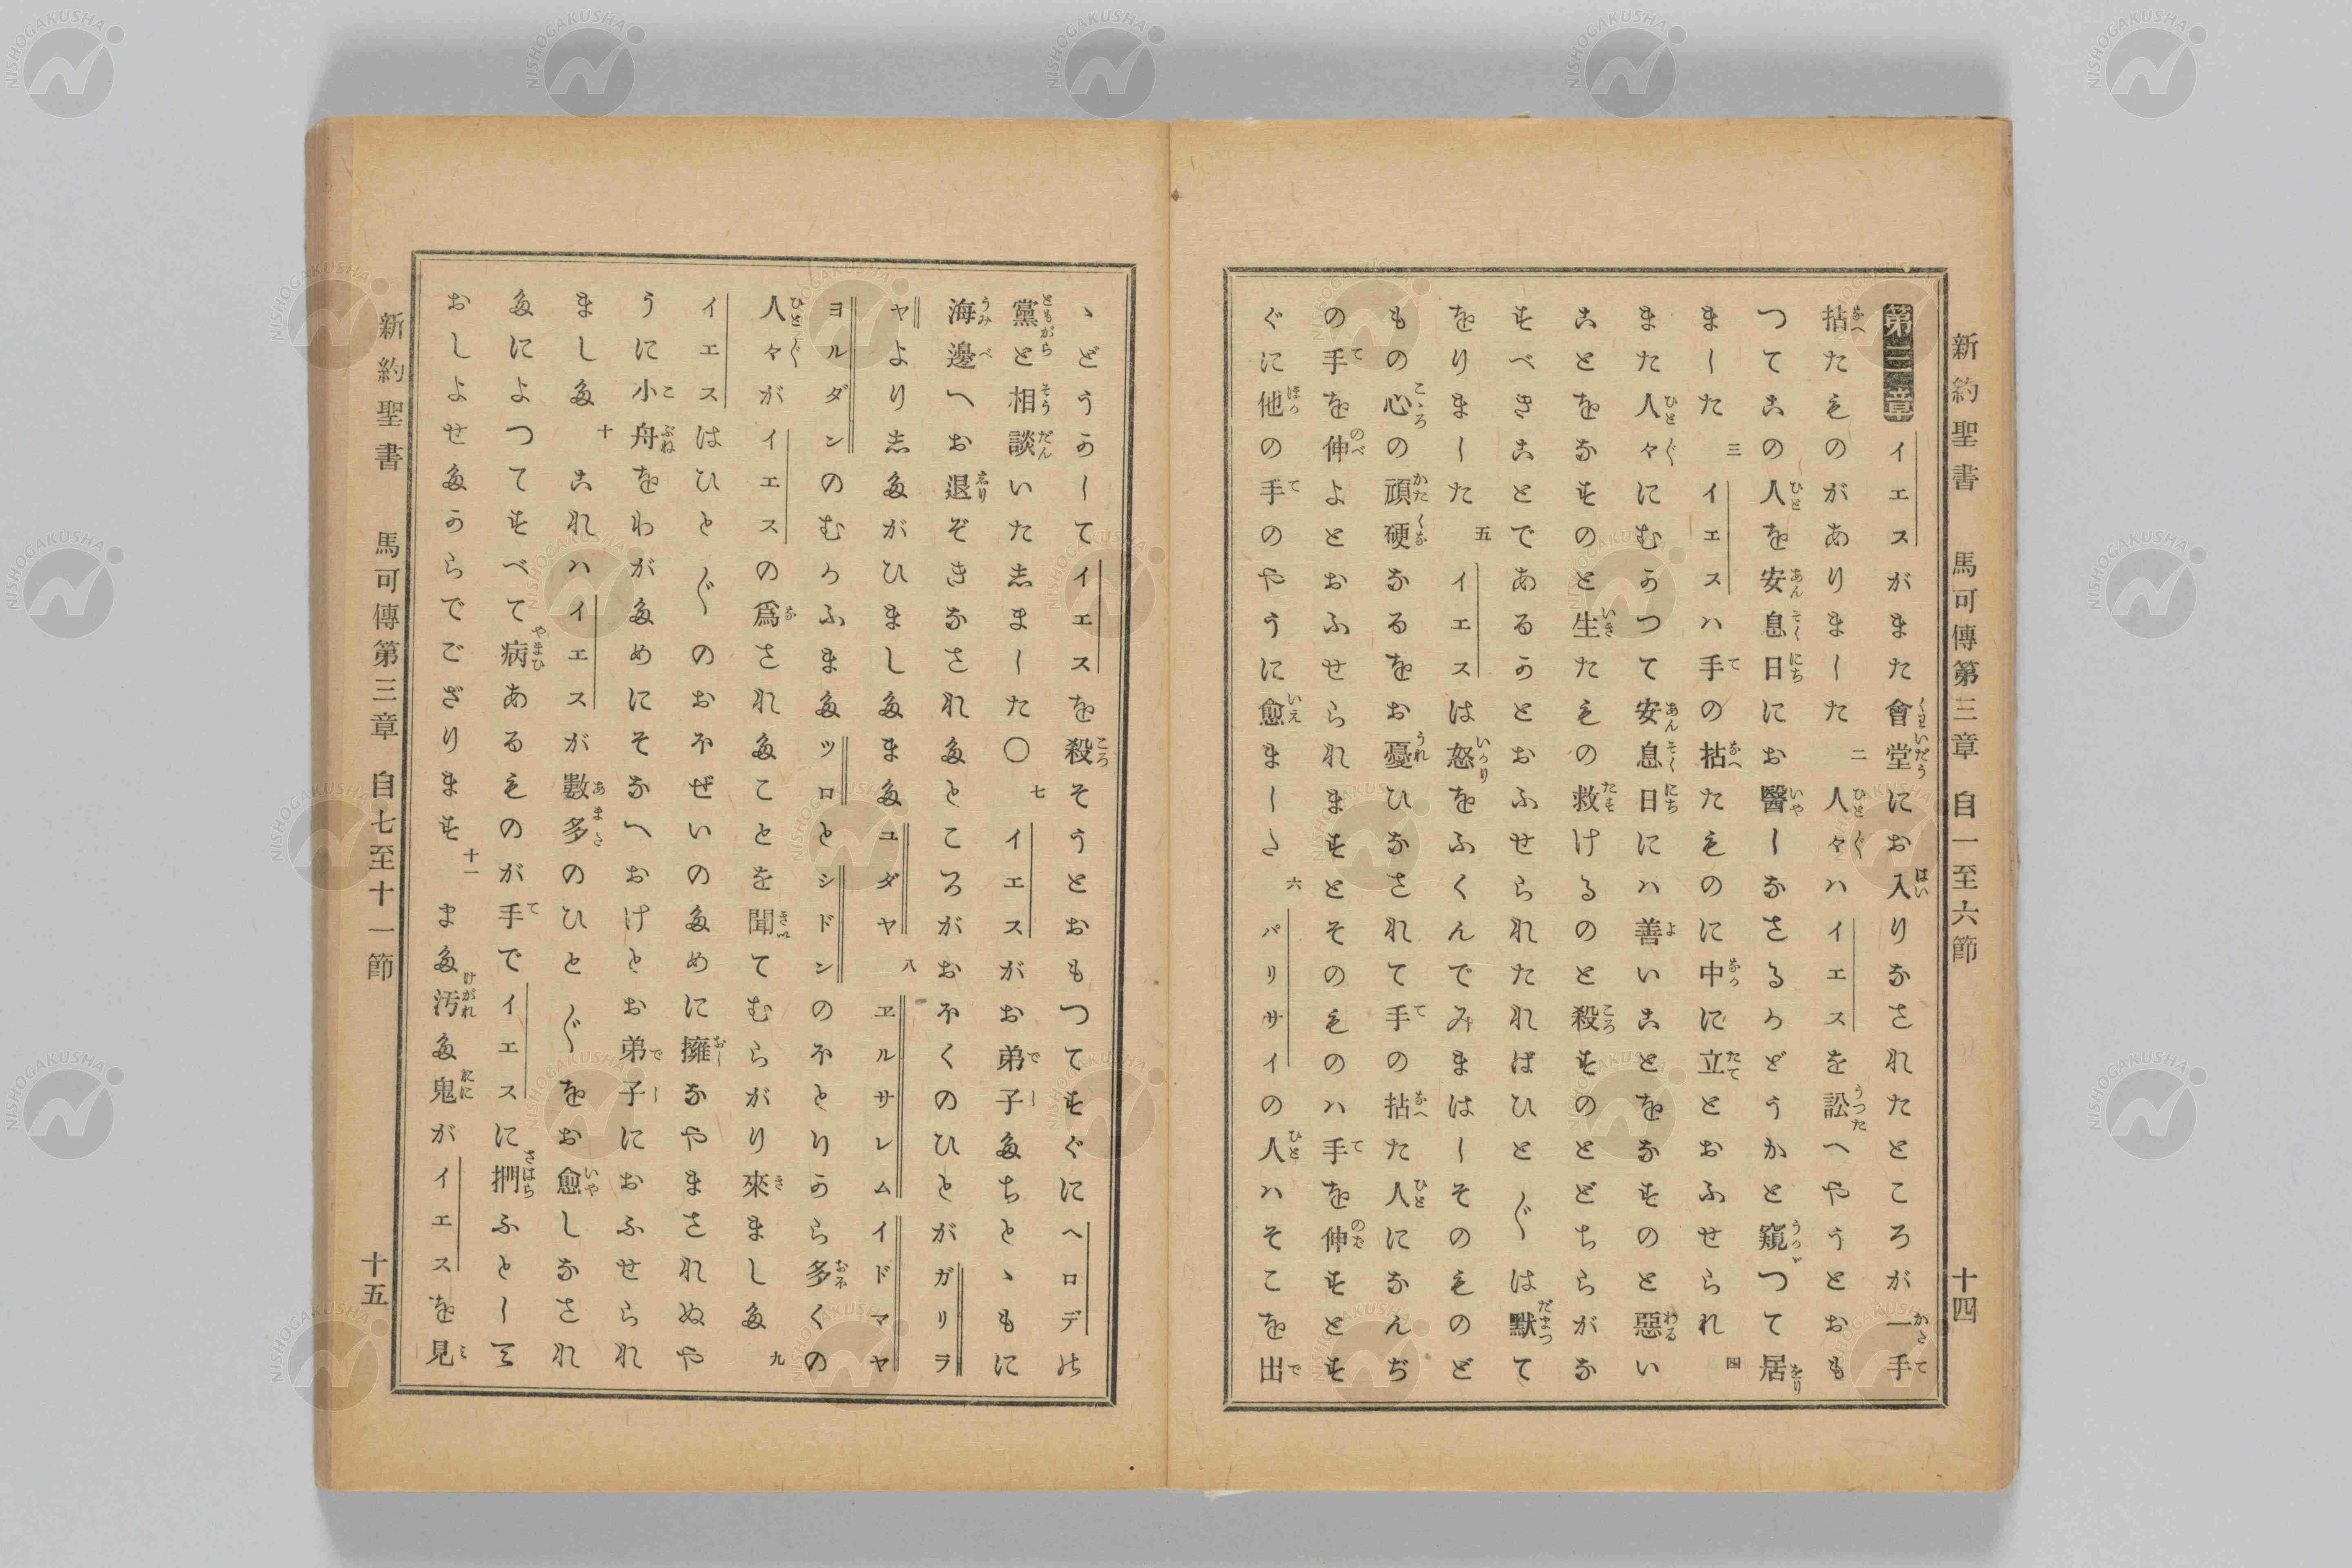 新約聖書 馬可傳第三章 自一至六節 十四
第三章 イエスがまた會堂にお入りなされたところが一手
拈たものがありました 二 人々ハイエスを訟へやうとおも
つてこの人を安息日にお醫しなさるかどうかと窺つて居
ました 三 イエスハ手の拈たものに中に立とおふせられ 四
また人々にむかつて安息日にハ善いことをなすのと惡い
ことをなすのと生たもの救けるのと殺すのとどちらがな
すべきことであるかとおふせられたればひと〲は默て
をりました 五 イエスは怒をふくんでみまはしそのものど
もの心の頑硬なるをお憂ひなされて手の拈た人になんぢ
の手を伸よとおふせられますとそのものハ手を伸すとす
ぐに他の手のやうに愈ました 六 パリサイの人ハそこを出
ゝどうかしてイエスを殺そうとおもつてすぐにヘロデの
黨と相談いたしました〇 七 イエスがお弟子たちとゝもに
海邊へお退ぞきなされたところがおほくのひとがガリラ
ヤよりしたがひましたまたユダヤ 八 ヱルサレムイドマヤ
ヨルダンのむかふまたツロとシドンのほとりから多くの
人々がイエスの爲されたことを聞てむらがり來ました 九
イエスはひと〲のおほぜいのために擁なやまされぬや
うに小舟をわがためにそなへおけとお弟子におふせられ
ました 十 これハイエスが數多のひと〲をお愈しなされ
たによつてすべて病あるものが手でイエスに捫ふとして
おしよせたからでござります 十一 また汚た鬼がイエスを見
新約聖書 馬可傳第三章 自七至十一節 十五
NISHOGAKUSHA